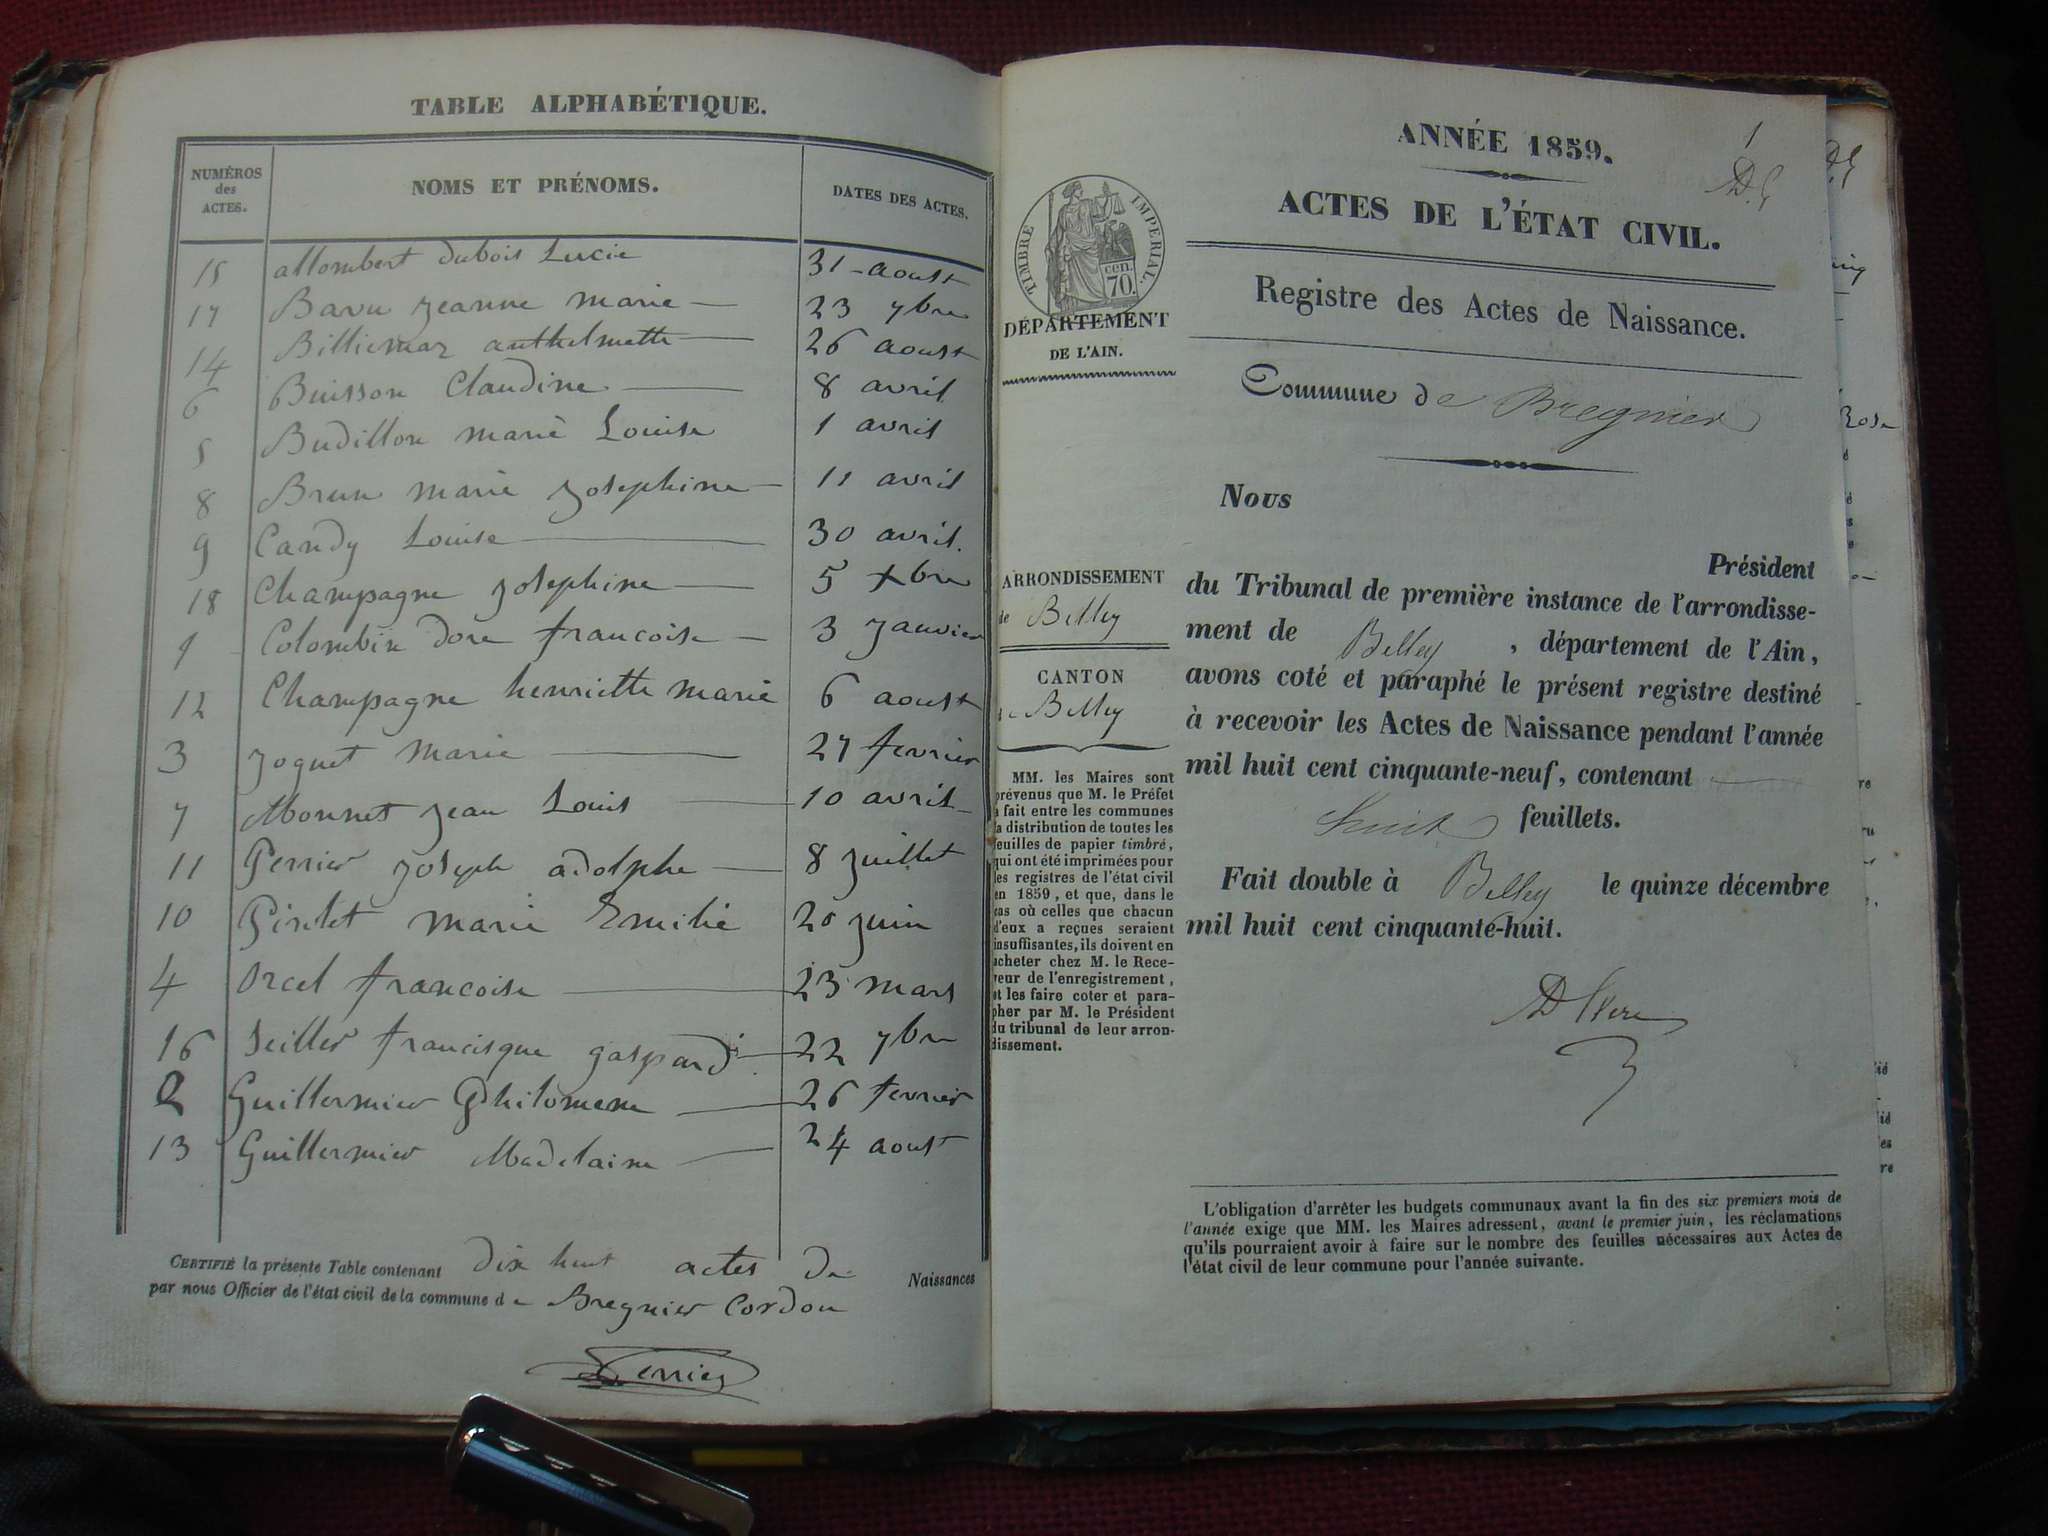 TABLE ALPHABÉTIQUE.
NUMÉROS des ACTES. NOMS ET PRÉNOMS. DATES DES ACTES.
15 allombert dubois Lucie 31 - aoust
17 Bavu jeanne marie — 23 7bre
14 Billiemaz anthelmette — 26 aoust
6 Buisson Claudine — 8 avril
5 Budillon marie Louise 1 avril
8 Brun marie josephine — 11 avril
9 Candy Louise — 30 avril.
18 Champagne josephine — 5 xbre
1 Colombin dore francoise — 3 janvier
12 Champagne henriette marie 6 aoust
3 joguet marie — 27 fevrier
7 Monnet jean Louis — 10 avril
11 Perrier joseph adolphe — 8 juillet
10 marie Emilie 20 juin
4 orcel francoise — 23 mars
16 Seiller francisque gaspard — 22 7bre
2 Guillermier Philomene — 26 fevrier
13 Guillermier Madelaine — 24 aoust
CERTIFIÉ la présente Table contenant dix huit actes de Naissances
par nous Officier de l'état civil de la commune de Bregnier Cordon
Perrier
1
ANNÉE 1859.
ACTES DE L'ÉTAT CIVIL.
TIMBRE IMPÉRIAL.
cen.
70.
DÉPARTEMENT
DE L'AIN.
Registre des Actes de Naissance.
Commune de Bregnier
Nous
Président
du Tribunal de première instance de l'arrondisse-
ment de Belley, département de l'Ain,
avons coté et paraphé le présent registre destiné
à recevoir les Actes de Naissance pendant l'année
mil huit cent cinquante-neuf, contenant
huit feuillets.
Fait double à Belley le quinze décembre
mil huit cent cinquante-huit.
ARRONDISSEMENT
de Belley
CANTON
de Belley
MM. les Maires sont
prévenus que M. le Préfet
a fait entre les communes
la distribution de toutes les
feuilles de papier timbré,
qui ont été imprimées pour
les registres de l'état civil
en 1859, et que, dans le
cas où celles que chacun
d'eux a reçues seraient
insuffisantes, ils doivent en
acheter chez M. le Rece-
veur de l'enregistrement,
et les faire coter et para-
pher par M. le Président
du tribunal de leur arron-
dissement.
L'obligation d'arrêter les budgets communaux avant la fin des six premiers mois de
l'année exige que MM. les Maires adressent, avant le premier juin, les réclamations
qu'ils pourraient avoir à faire sur le nombre des feuilles nécessaires aux Actes de
l'état civil de leur commune pour l'année suivante.
Rose